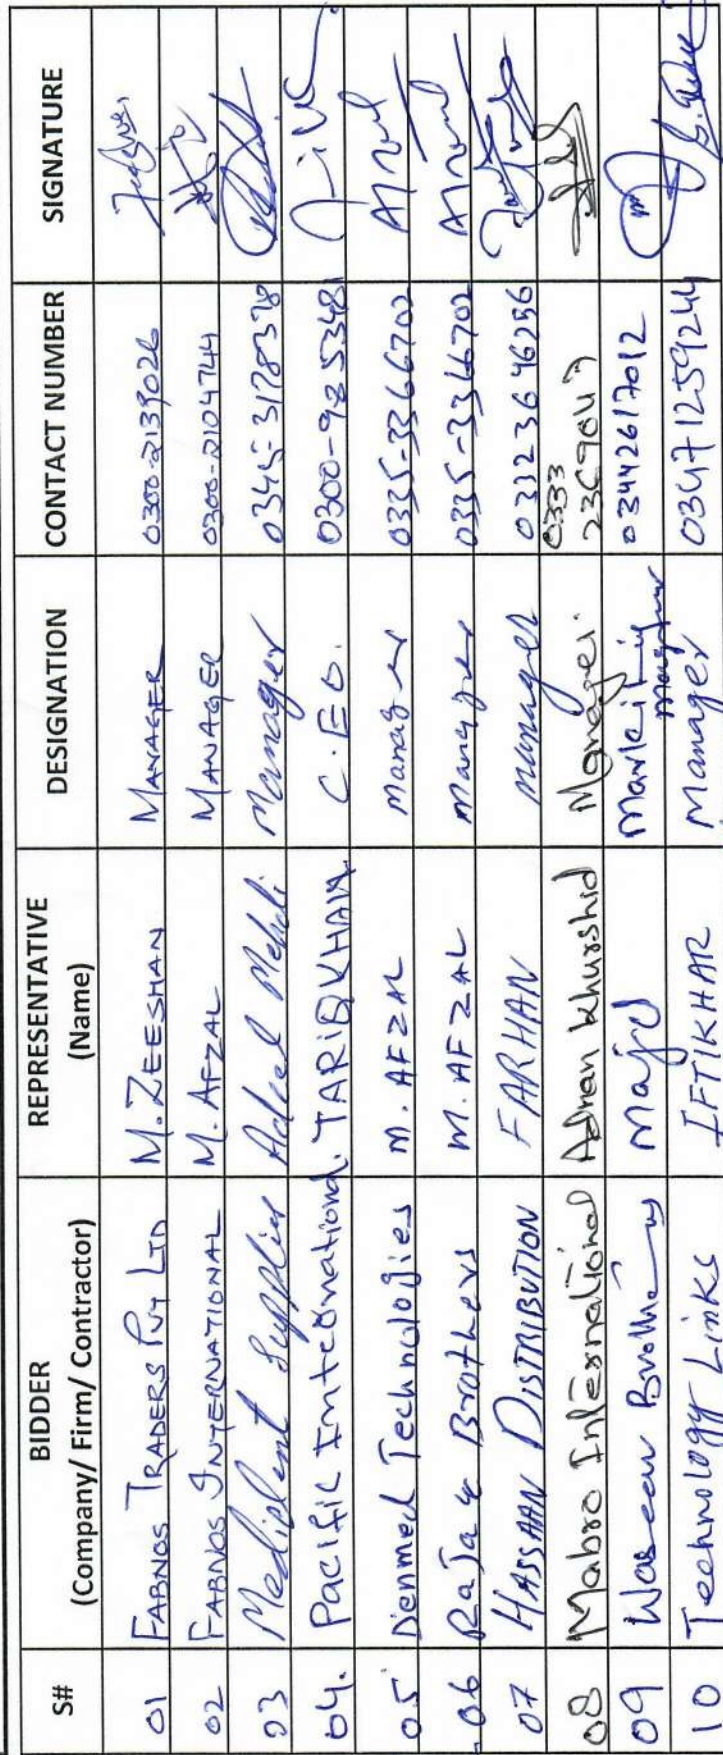 S# BIDDER (Company/ Firm/ Contractor) REPRESENTATIVE (Name) DESIGNATION CONTACT NUMBER SIGNATURE
01 FABNOS TRADERS PVT LTD M. ZEESHAN MANAGER 0300-2139026
02 FABNOS INTERNATIONAL M. AFZAL MANAGER 0300-2104744
03 Medident Supplies Mehdi Manager 0345-3178378
04. Pacific International TARIQ KHAN C.E.O.
05 Dienmed Technologies M. AFZAL Manager 0335-3366702
06 RaJa & Brothers M. AFZAL Manager 0335-3366702
07 HASSAAN DISTRIBUTION FARHAN Manager
08 Mabro International Adnan Khurshid Manager. 0333
09 Waseem Brothers Majid Marketing Manager 03442617012
10 Technology Links IFTIKHAR Manager 03471259244